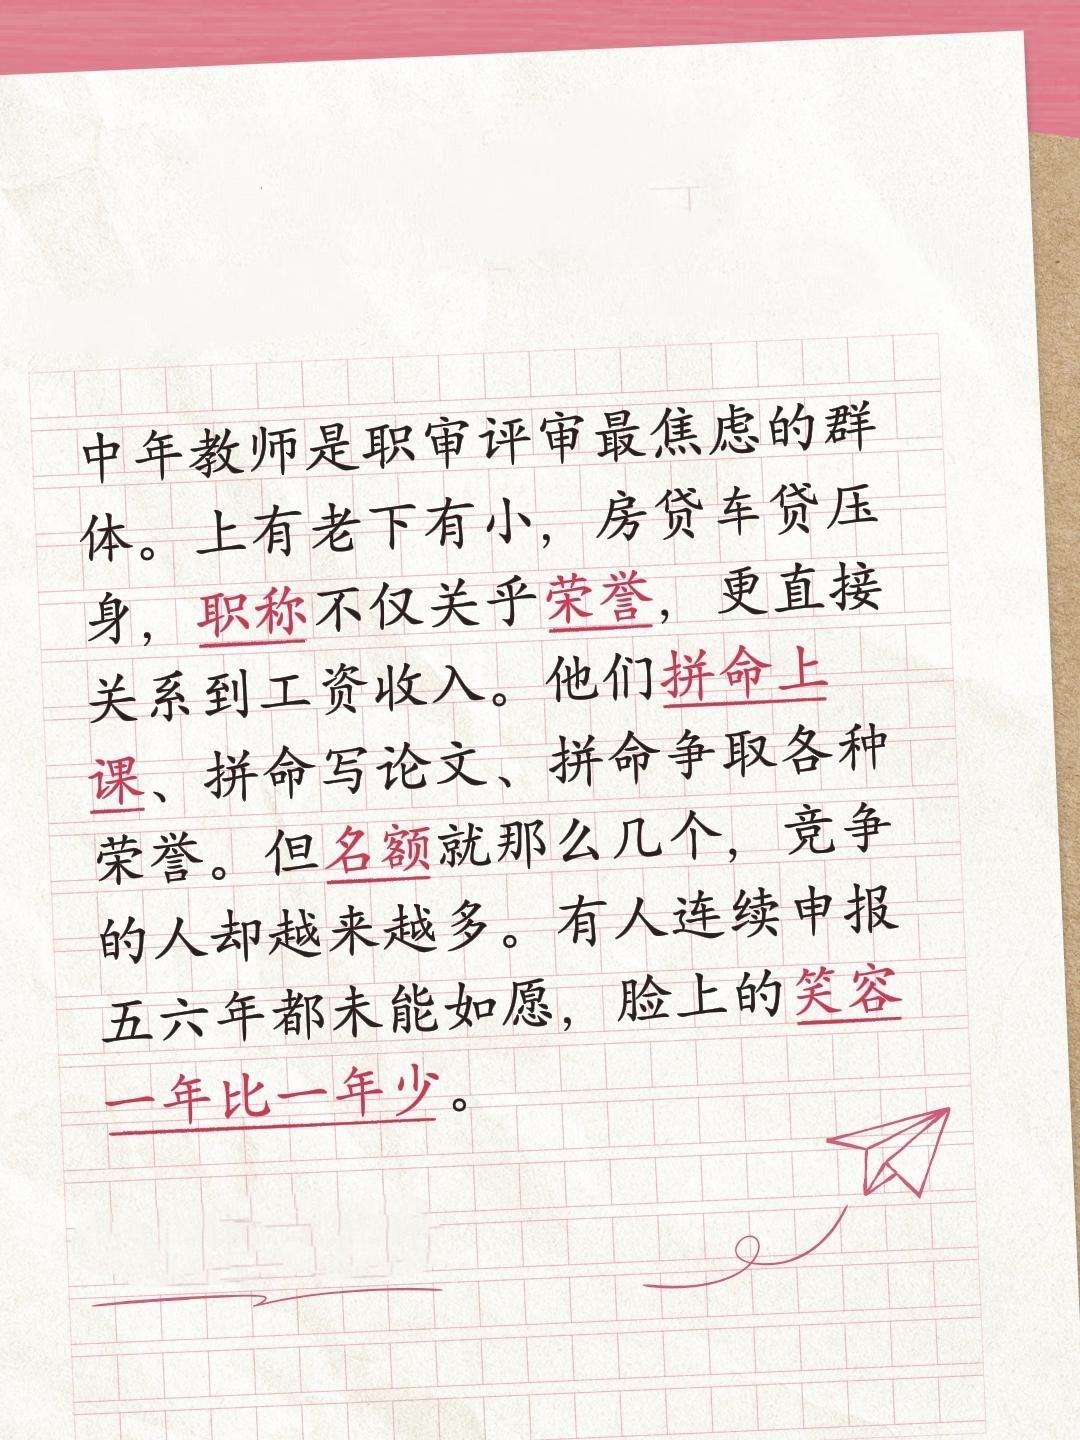 中年教师是职审评审最焦虑的群
体。上有老下有小，房贷车贷压
身，职称不仅关乎荣誉，更直接
关系到工资收入。他们拼命上
课、拼命写论文、拼命争取各种
荣誉。但名额就那么几个，竞争
的人却越来越多。有人连续申报
五六年都未能如愿，脸上的笑容
一年比一年少。